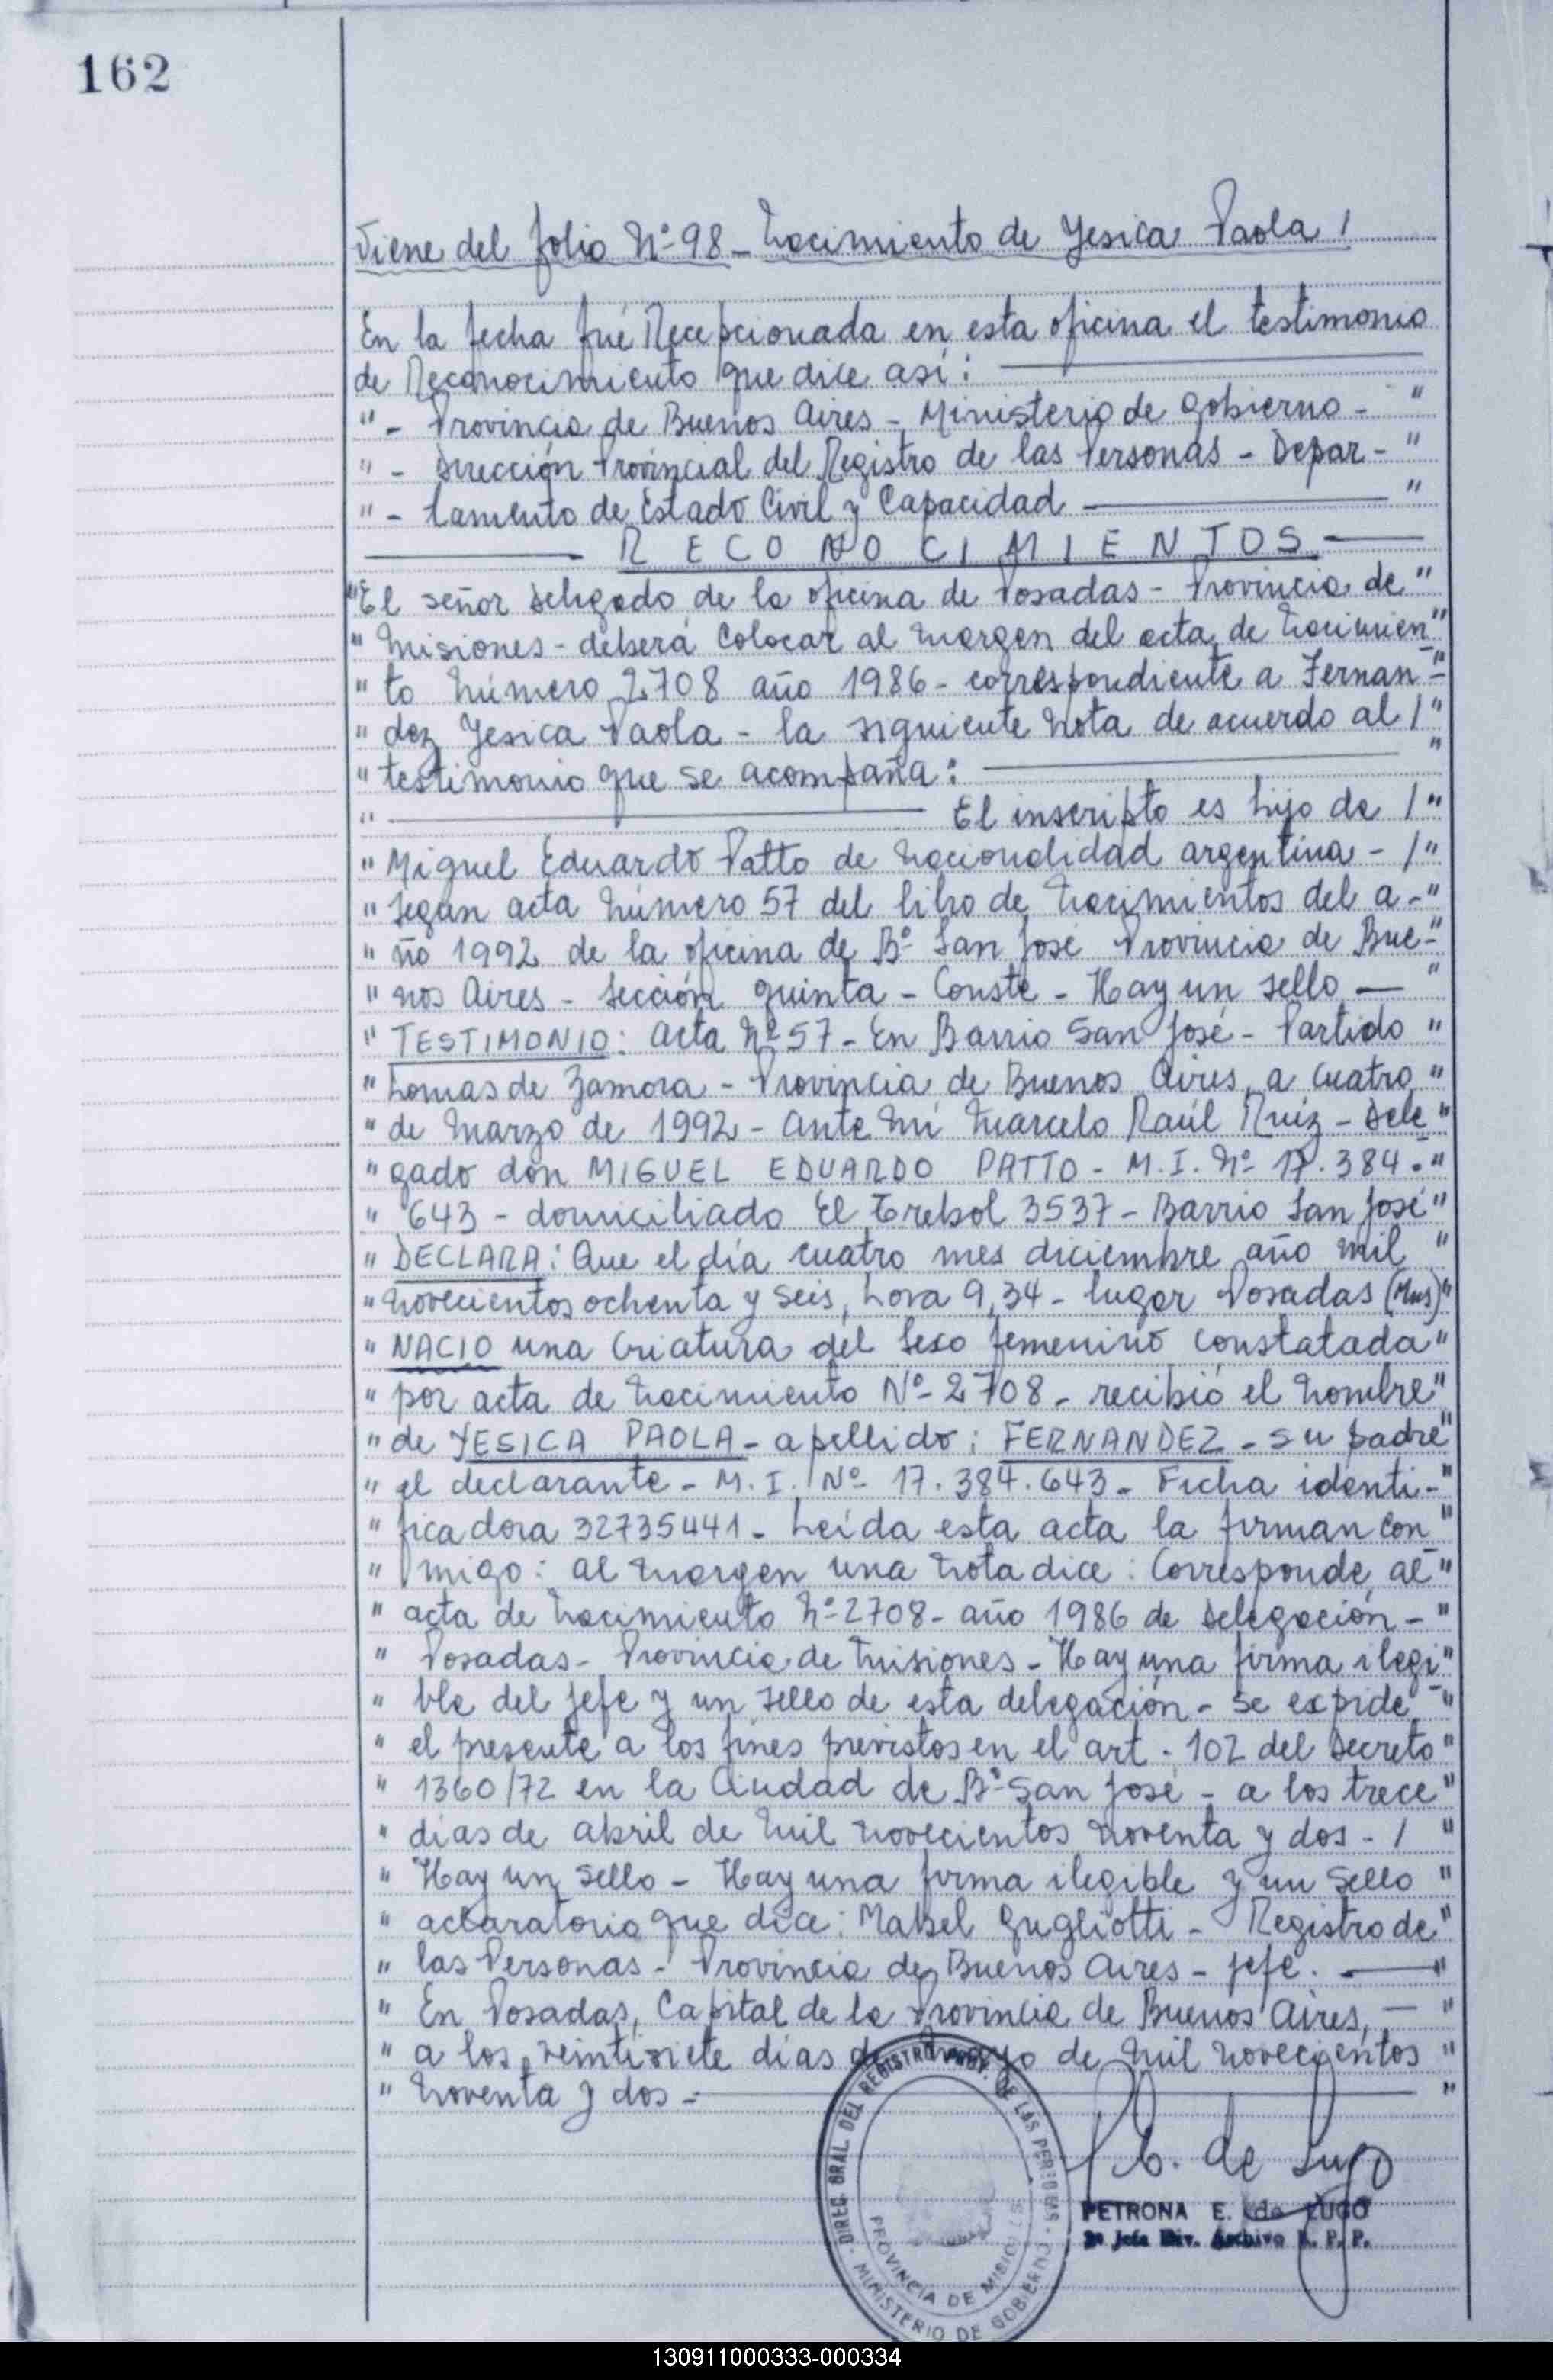 162
Viene del folio Nº 98 - Nacimiento de Yesica Paola /
En la fecha fué Recepcionada en esta oficina el testimonio
de Reconocimiento que dice así:
"- Provincia de Buenos Aires - Ministerio de Gobierno - "
"- Dirección Provincial del Registro de las Personas - Depar- "
"- tamento de Estado Civil y Capacidad "
RECONOCIMIENTOS
"El señor Delegado de la oficina de Posadas - Provincia de "
" Misiones - deberá Colocar al margen del acta de Nacimien "
" to Número 2708 año 1986 - correspondiente a Fernan - "
" dez Yesica Paola - la siguiente Nota de acuerdo al / "
" testimonio que se acompaña: "
" El inscripto es hijo de / "
" Miguel Eduardo Patto de Nacionalidad argentina - / "
" Segun acta Número 57 del libro de Nacimientos del a - "
" ño 1992 de la oficina de Bº San José Provincia de Bue - "
" nos Aires - Sección quinta - Conste - Hay un sello — "
" TESTIMONIO: Acta Nº 57 - En Barrio San José - Partido "
" Lomas de Zamora - Provincia de Buenos Aires, a cuatro "
" de Marzo de 1992 - ante mí Marcelo Raúl Ruiz - Dele "
" gado don MIGUEL EDUARDO PATTO - M.I. Nº 17.384. "
" 643 - domiciliado El Trebol 3537 - Barrio San José "
" DECLARA: Que el día cuatro mes diciembre año mil "
" Novecientos ochenta y seis, hora 9,34 - lugar Posadas (Mns) "
" NACIO una Criatura del Sexo femenino constatada "
" por acta de Nacimiento Nº 2708 - recibió el Nombre "
" de YESICA PAOLA - apellido: FERNANDEZ - su padre "
" el declarante - M.I. Nº 17.384.643 - Ficha identi - "
" ficadora 32735441 - Leída esta acta la firman con "
" migo: al margen una Nota dice: Corresponde al "
" acta de Nacimiento Nº 2708 - año 1986 de Delegación - "
" Posadas - Provincia de Misiones - Hay una firma ilegi "
" ble del Jefe y un sello de esta delegación - Se expide - "
" el presente a los fines previstos en el art. 102 del Decreto "
" 1360/72 en la Ciudad de Bº San José - a los trece "
" días de abril de Mil Novecientos Noventa y dos - / "
" Hay un sello - Hay una firma ilegible y un Sello "
" aclaratorio que dice: Mabel Gugliotti - Registro de "
" las Personas - Provincia de Buenos Aires - Jefe. — "
" En Posadas, Capital de la Provincia de Buenos Aires, — "
" a los veintisiete días de mayo de Mil Novecientos "
" Noventa y dos - "
DIREC. GRAL. DEL REGISTRO PROV. DE LAS PERSONAS - MINISTERIO DE GOBIERNO -
PROVINCIA DE MISIONES
P. E. de Lugo
PETRONA E. de LUGO
2º Jefe Div. Archivo R. P. P.
130911000333-000334